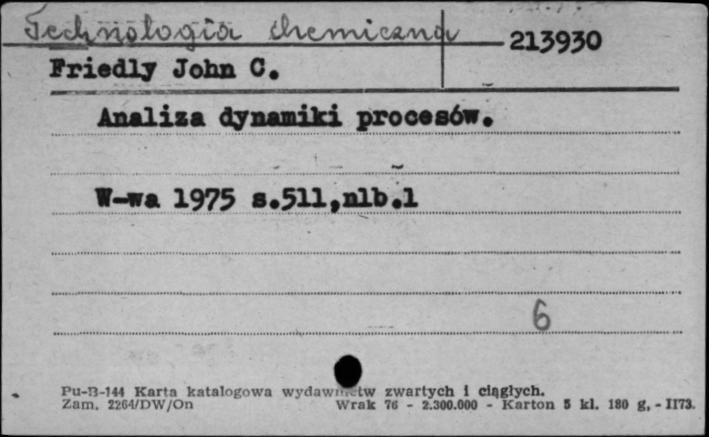 Technologia chemiczna
213930
Friedly John C.
Analiza dynamiki procesów.
W-wa 1975 s.511,nlb.1
6
Pu-B-144 Karta katalogowa wydawnictw zwartych i ciągłych.
Zam. 2264/DW/On Wrak 76 - 2.300.000 - Karton 5 kl. 180 g, - II73.